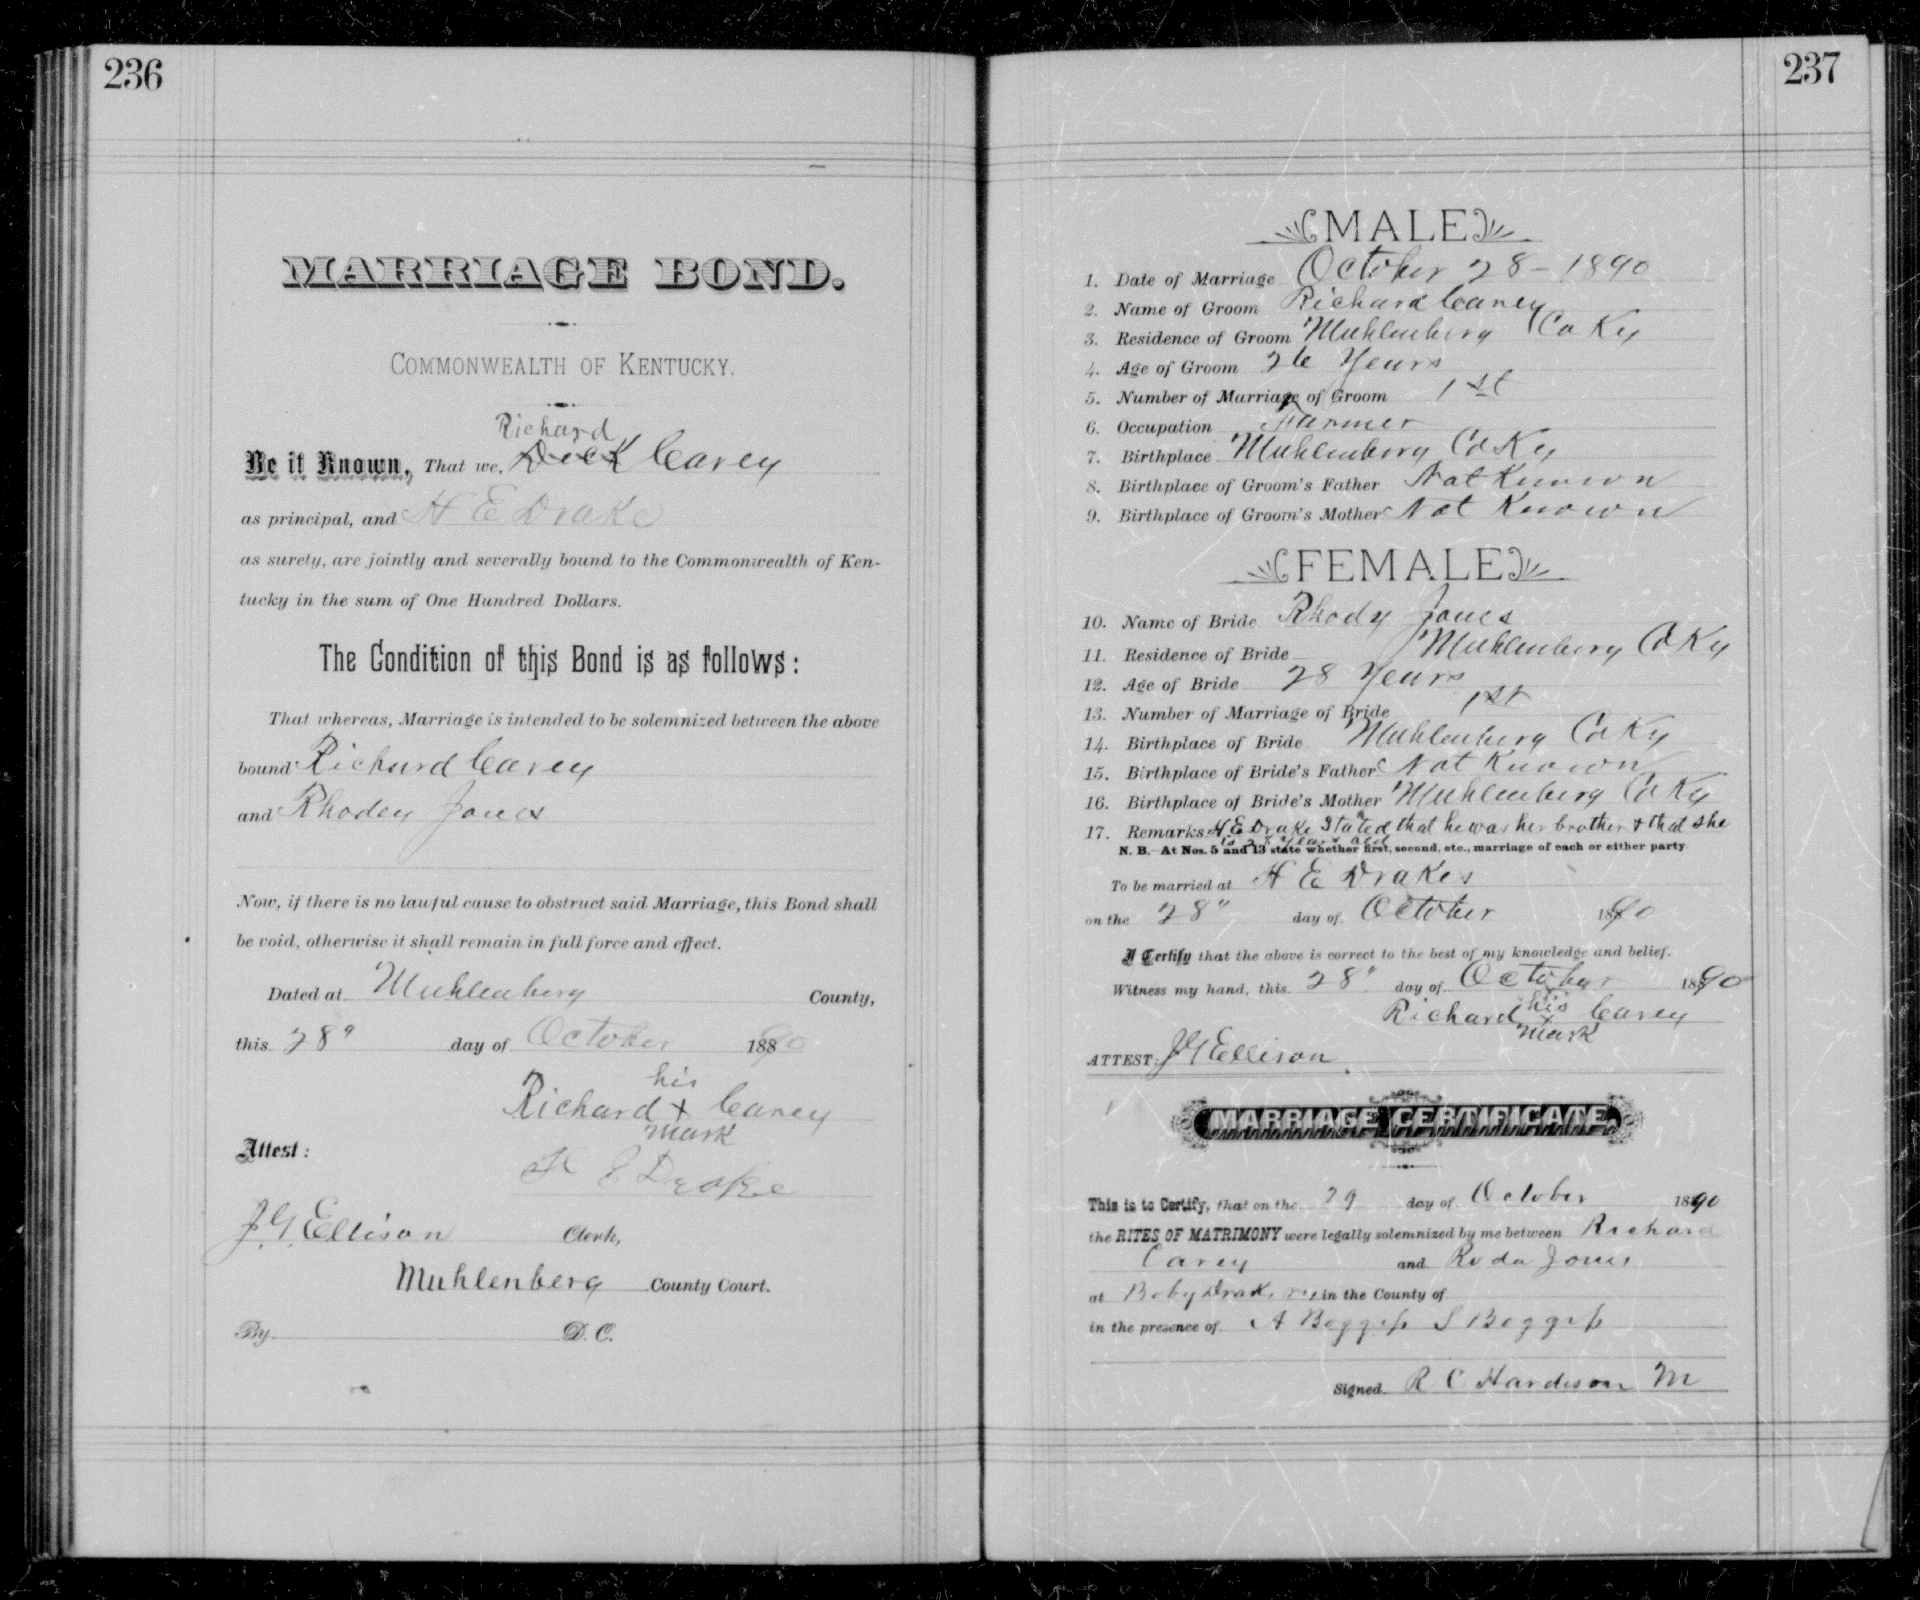 236
MARRIAGE BOND.
COMMONWEALTH OF KENTUCKY.
Richard
Be it Known, That we, Dick Carey
as principal, and H E Drake
as surety, are jointly and severally bound to the Commonwealth of Ken-
tucky in the sum of One Hundred Dollars.
The Condition of this Bond is as follows:
That whereas, Marriage is intended to be solemnized between the above
bound Richard Carey
and Rhodey Jones
Now, if there is no lawful cause to obstruct said Marriage, this Bond shall
be void, otherwise it shall remain in full force and effect.
Dated at Muhlenberg County,
this 28" day of October 1890
his
Richard + Carey
mark
Attest:
H E Drake
J.G. Ellison Clerk,
Muhlenberg County Court.
By D. C.
237
MALE
1. Date of Marriage October 28 - 1890
2. Name of Groom Richard Carey
3. Residence of Groom Muhlenberg Co Ky
4. Age of Groom 26 Years
5. Number of Marriage of Groom 1st
6. Occupation Farmer
7. Birthplace Muhlenberg Co Ky
8. Birthplace of Groom's Father Not Known
9. Birthplace of Groom's Mother Not Known
FEMALE
10. Name of Bride Rhody Jones
11. Residence of Bride Muhlenberg Co Ky
12. Age of Bride 28 Years
13. Number of Marriage of Bride 1st
14. Birthplace of Bride Muhlenberg Co Ky
15. Birthplace of Bride's Father Not Known
16. Birthplace of Bride's Mother Muhlenberg Co Ky
17. Remarks H E Drake Stated that he was her brother & that she
is 28 years old
N. B.—At Nos. 5 and 13 state whether first, second, etc., marriage of each or either party
To be married at H E Drakes
on the 28" day of October 1890
I Certify that the above is correct to the best of my knowledge and belief.
Witness my hand, this 28" day of October 1890
his
Richard x Carey
mark
ATTEST: J G Ellison
MARRIAGE CERTIFICATE.
This is to Certify, that on the 29 day of October 1890
the RITES OF MATRIMONY were legally solemnized by me between Richard
Carey and Roda Jones
at Boby Drake in the County of
in the presence of A Boggess S Boggess
Signed R C Hardison M